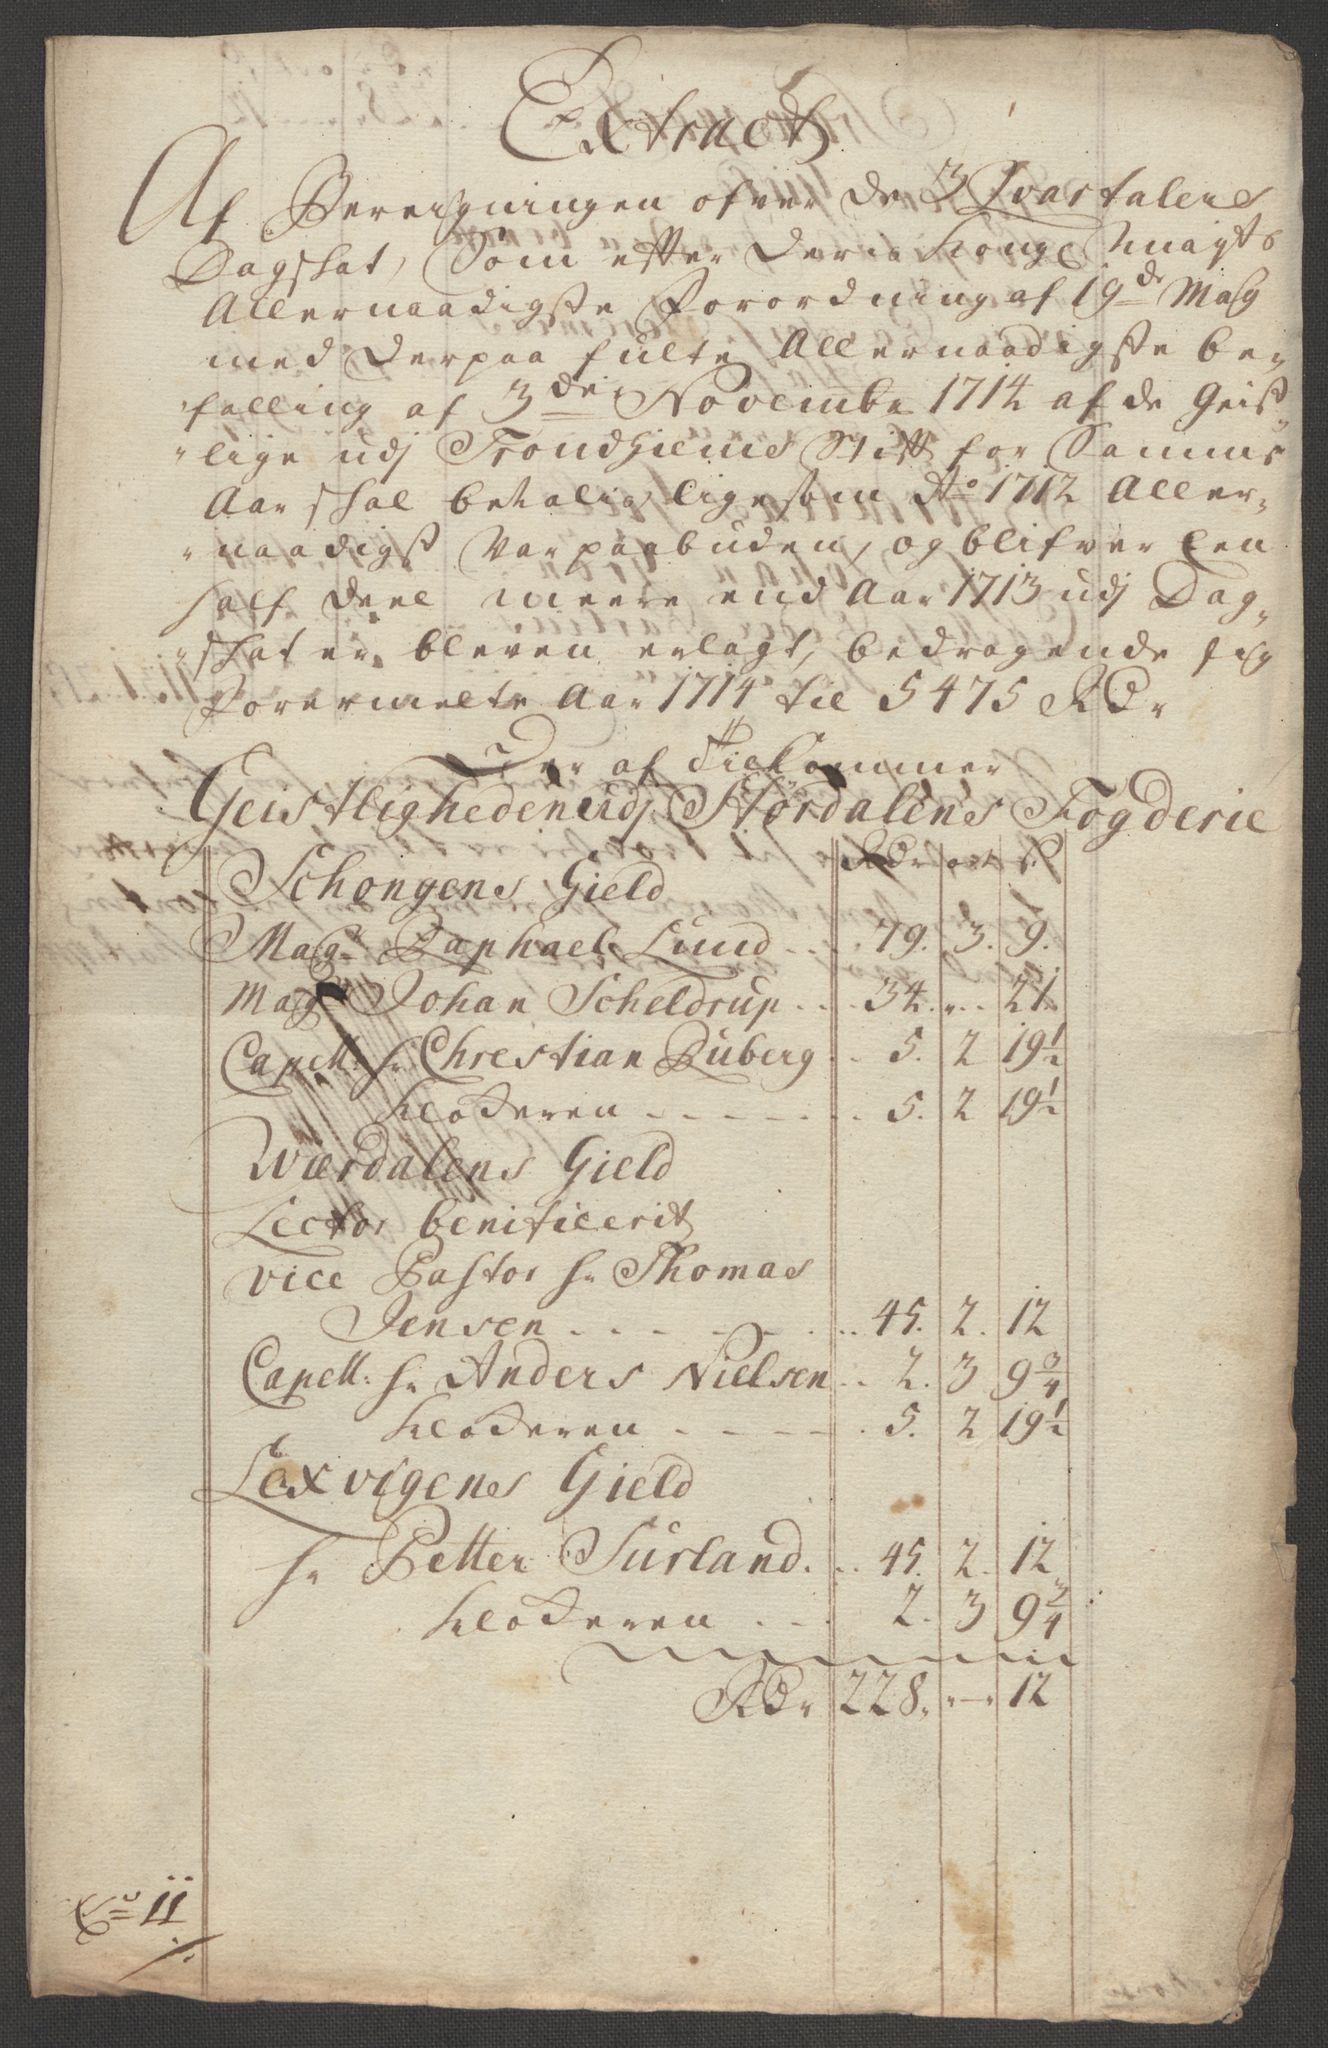 Extract
Af Beregningen ofver de 3 Qvartalers
Dagskat, Som efter Deris Kongl Mayts
Allernaadigste Forordning af 19de Maÿ
med Derpaa fulte Allernaadigste be-
falling af 3de November 1714 af de Geist-
lige udj Trondhiems Stift for Samme
Aar skal betalis, ligesom Ao 1712 Aller-
naadigst var paabuden, og blifver Een
half Deel meere end Aar 1713 udj Dag-
skatter bleven erlagt, bedragende sig
Forermelte Aar 1714 til 5475 Rdr
Der af tilkommer
Geistligheden udj Størdalens Fogderie
Rdr ort s
Schongens Gield
Magr Raphael Lund .... 79. 3. 9.
Magr Johan Scheldrup .... 34. „ .. 21
Capell: hr Christian Ruberg .. 5. 2 19½
Klockeren - - - - - 5. 2 19½
Wærdalens Gield
Lector benificerit
vice Pastor hr Thomas
Jensen - - - - - 45. 2. 12
Capell: hr Anders Nielsen .. 2. 3 9¾
Klockeren - - - - 5. 2 19½
Lexvigens Gield
hr Petter Surland ... 45. 2. 12
Klockeren - - - 2. 3 9¾
Rdr 228. „ — „ 12
No 11